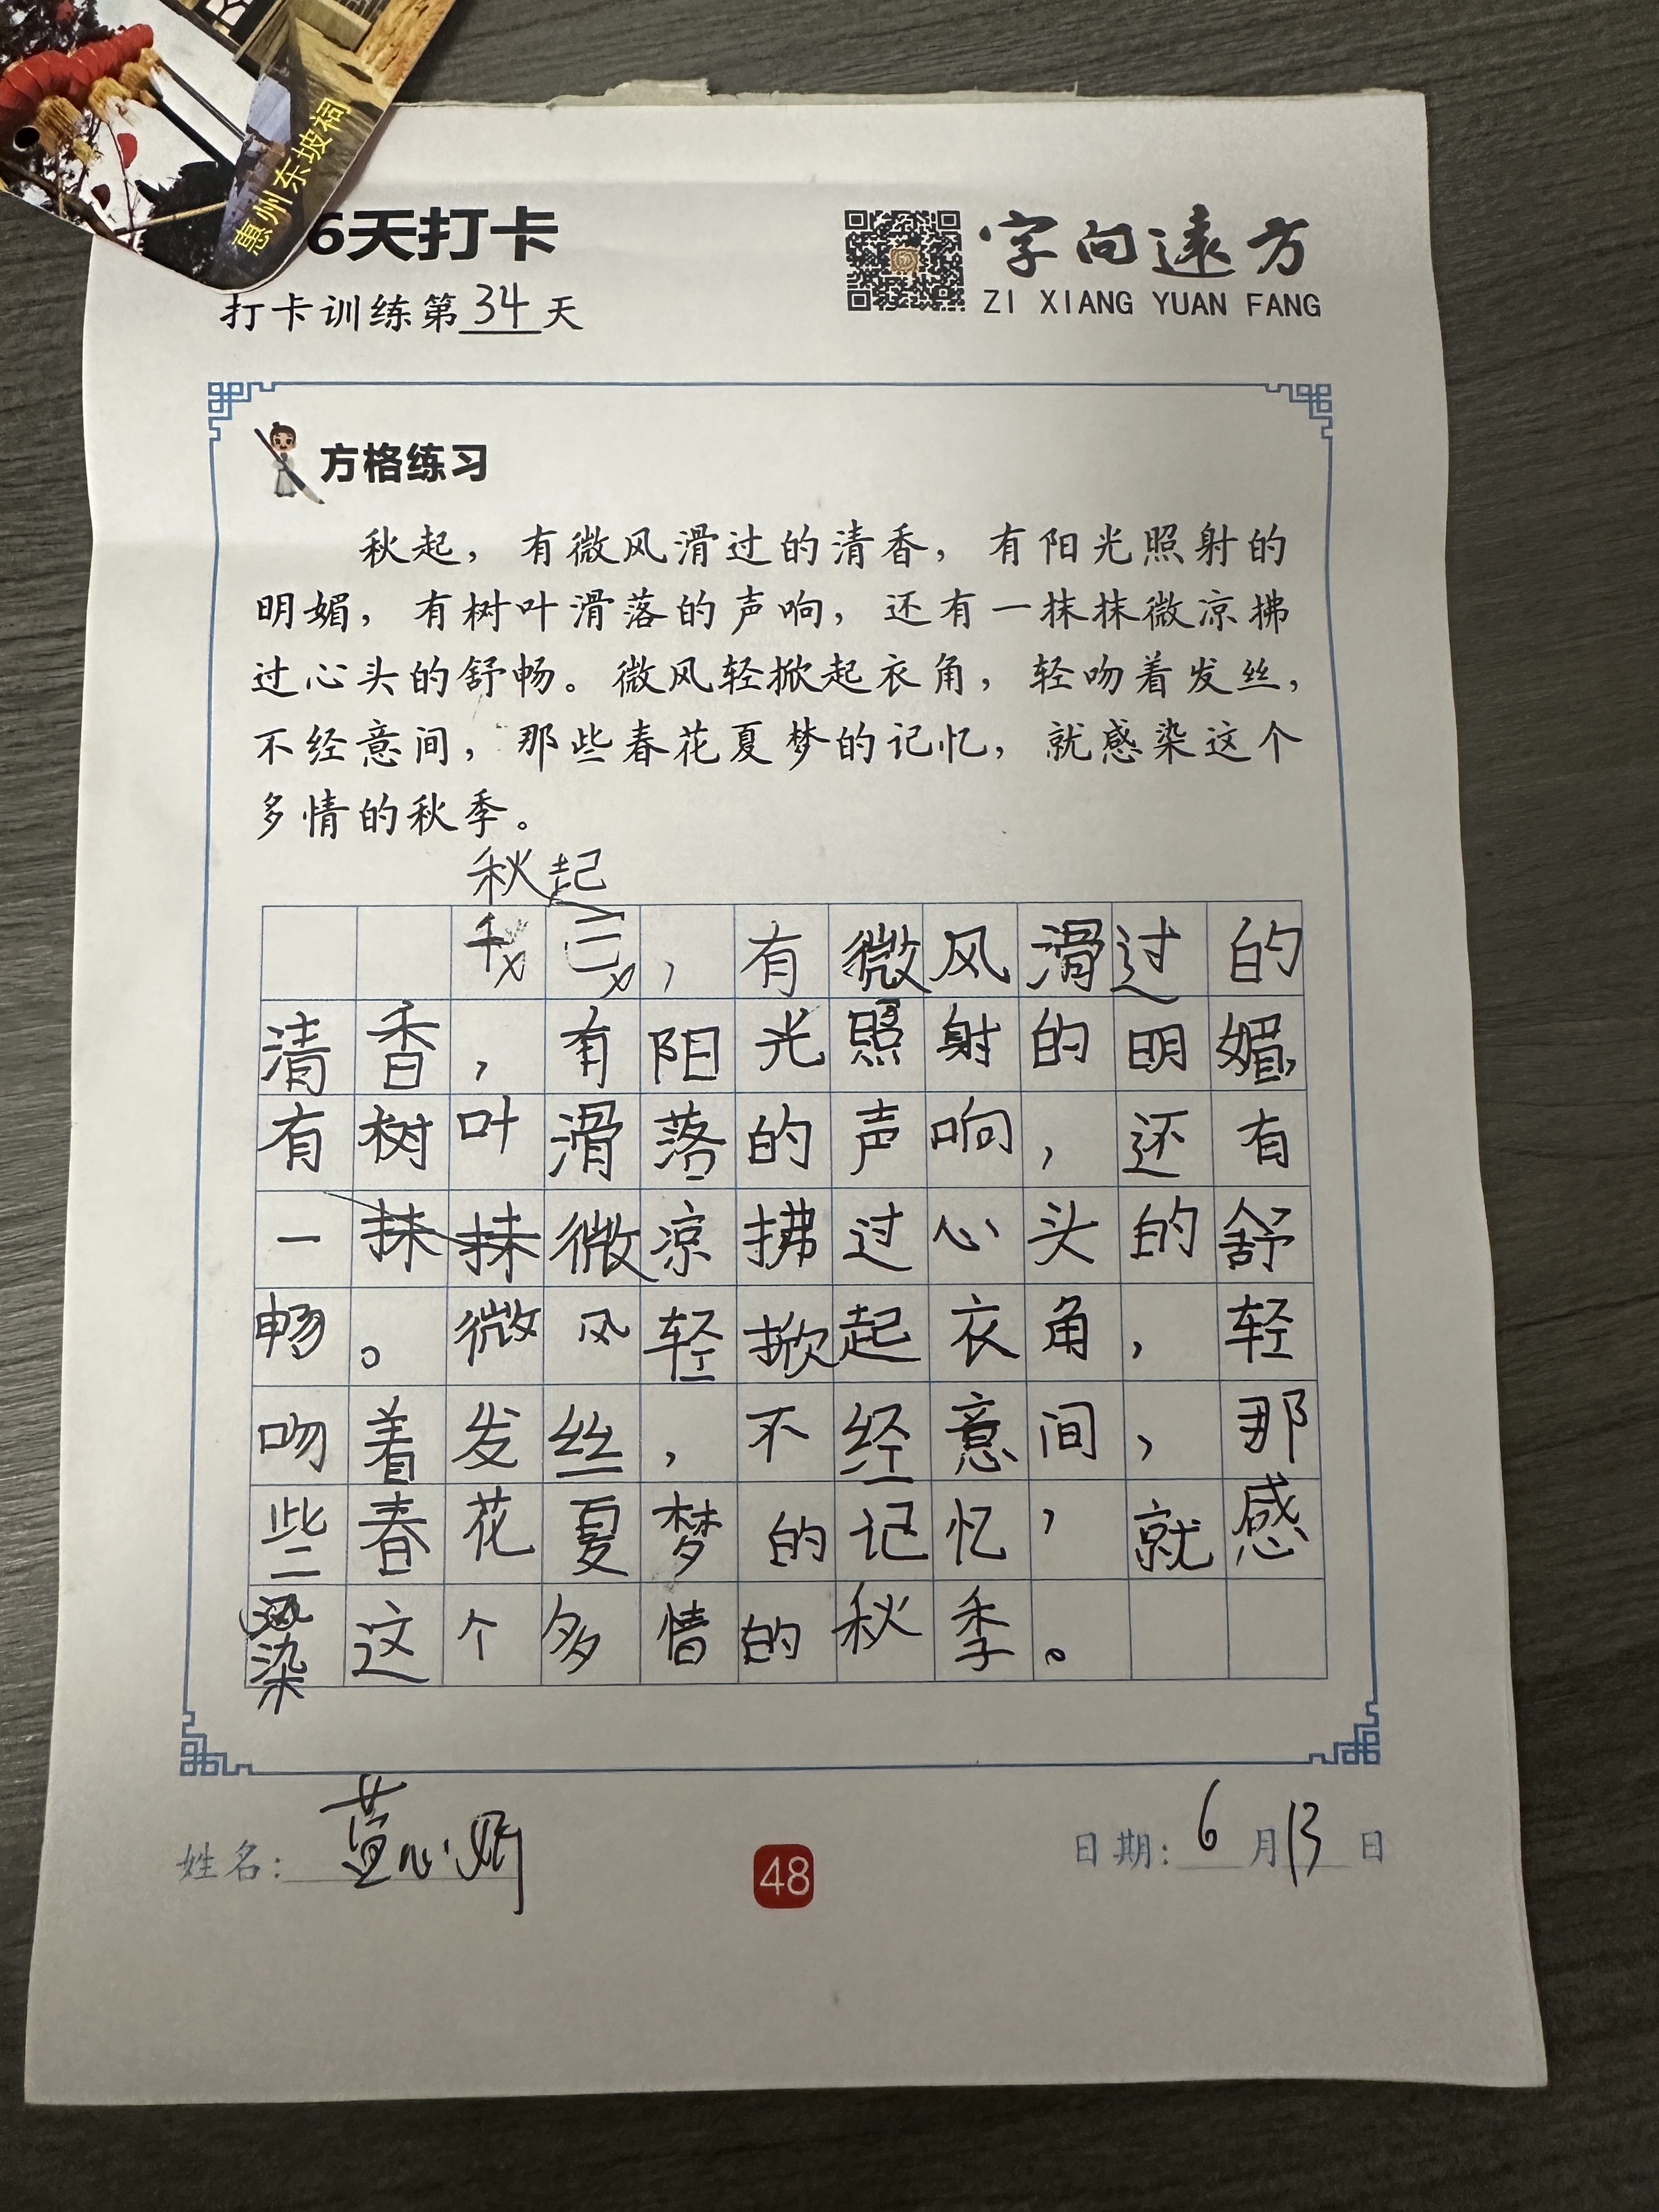 惠州东坡祠
6天打卡
打卡训练第34天
字向遠方
ZI XIANG YUAN FANG
方格练习
秋起，有微风滑过的清香，有阳光照射的
明媚，有树叶滑落的声响，还有一抹抹微凉拂
过心头的舒畅。微风轻掀起衣角，轻吻着发丝，
不经意间，那些春花夏梦的记忆，就感染这个
多情的秋季。
秋起
，有微风滑过的
清香，有阳光照射的明媚，
有树叶滑落的声响，还有
一抹抹微凉拂过心头的舒
畅。微风轻掀起衣角，轻
吻着发丝，不经意间，那
些春花夏梦的记忆，就感
染这个多情的秋季。
姓名：
48
日期：6月13日